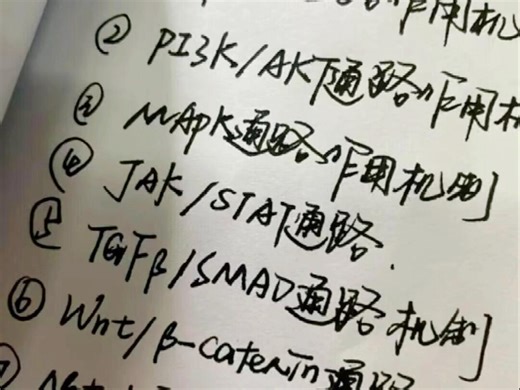 作用机
② PI3K/AKT通路作用机
③ MAPK通路作用机制
④ JAK/STAT通路.
⑤ TGFβ/SMAD通路机制
⑥ Wnt/β-catenin通路
⑦